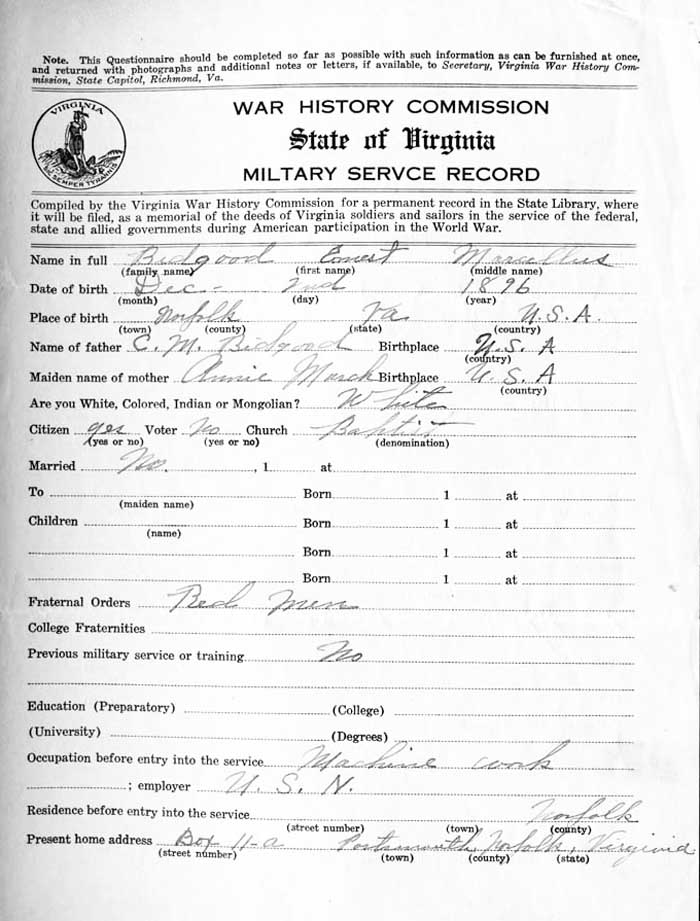 Note. This Questionnaire should be completed so far as possible with such information as can be furnished at once,
and returned with photographs and additional notes or letters, if available, to Secretary, Virginia War History Com-
mission, State Capitol, Richmond, Va.
VIRGINIA
SIC SEMPER TYRANNIS
WAR HISTORY COMMISSION
State of Virginia
MILTARY SERVCE RECORD
Compiled by the Virginia War History Commission for a permanent record in the State Library, where
it will be filed, as a memorial of the deeds of Virginia soldiers and sailors in the service of the federal,
state and allied governments during American participation in the World War.
Name in full Bidgood Ernest Marcellus
(family name) (first name) (middle name)
Date of birth Dec- 2nd 1896
(month) (day) (year)
Place of birth Norfolk Va U.S.A.
(town) (county) (state) (country)
Name of father C. M. Bidgood Birthplace U.S.A
(country)
Maiden name of mother Annie March Birthplace U.S.A
(country)
Are you White, Colored, Indian or Mongolian? White
Citizen yes Voter No Church Baptist
(yes or no) (yes or no) (denomination)
Married No , 1 at
To Born 1 at
(maiden name)
Children Born 1 at
(name)
Born 1 at
Born 1 at
Fraternal Orders Red Men
College Fraternities
Previous military service or training No
Education (Preparatory) (College)
(University) (Degrees)
Occupation before entry into the service Machine work
; employer U. S. N.
Residence before entry into the service Norfolk
(street number) (town) (county)
Present home address Box 11-a Portsmouth, Norfolk, Virginia
(street number) (town) (county) (state)